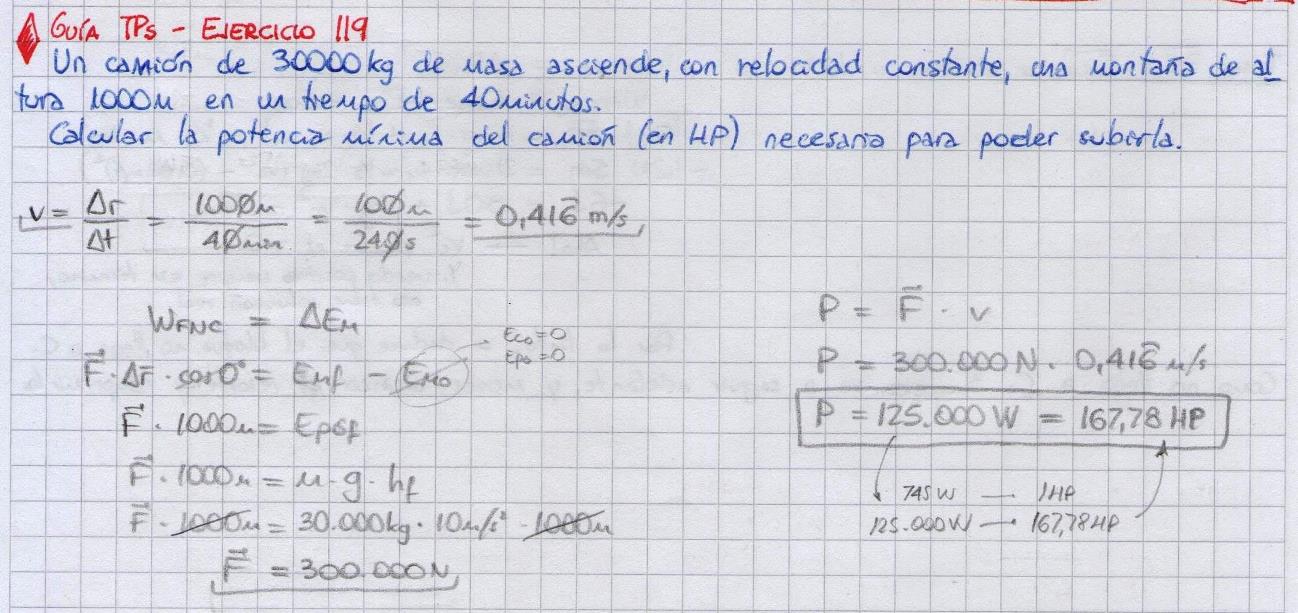 GUÍA TPs - EJERCICIO 119
Un camión de 30000kg de masa asciende, con velocidad constante, una montaña de al
tura 1000m en un tiempo de 40minutos.
Calcular la potencia mínima del camión (en HP) necesaria para poder subirla.
v = Δr/Δt = 1000m/40min. = 100m/240s = 0,416̄ m/s
WFNC = ΔEM
F⃗ · Δr̄ · cos0° = EMf - EMo
Eco=0
Epo=0
F⃗ · 1000m = EpGf
F⃗ · 1000m = m · g · hf
F⃗ · 1000m = 30.000kg · 10m/s² · 1000m
F⃗ = 300.000N
P = F⃗ · v
P = 300.000N · 0,416̄ m/s
P = 125.000W = 167,78 HP
745W — 1HP
125.000W — 167,78HP